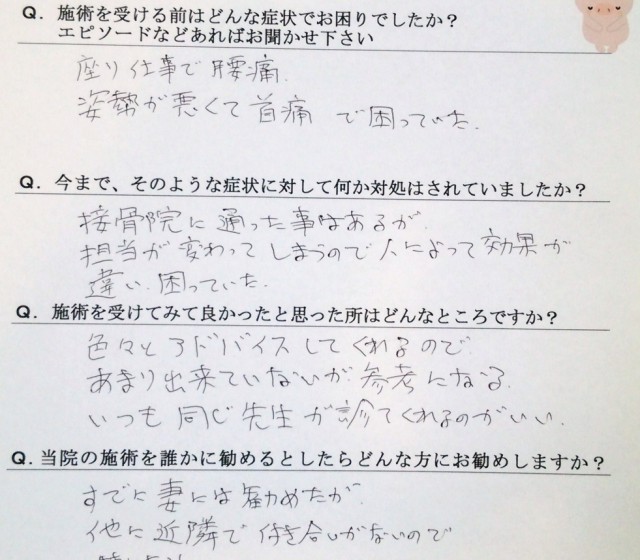 Q. 施術を受ける前はどんな症状でお困りでしたか？
エピソードなどあればお聞かせ下さい
座り仕事で腰痛.
姿勢が悪くて首痛 で困っていた.
Q. 今まで、そのような症状に対して何か対処はされていましたか？
接骨院に通った事はあるが.
担当が変わってしまうので人によって効果が
違い.困っていた.
Q. 施術を受けてみて良かったと思った所はどんなところですか？
色々とアドバイスしてくれるので
あまり出来ていないが.参考になる.
いつも同じ先生が診てくれるのがいい.
Q. 当院の施術を誰かに勧めるとしたらどんな方にお勧めしますか？
すでに妻には勧めたが.
他に近隣で付き合いがないので